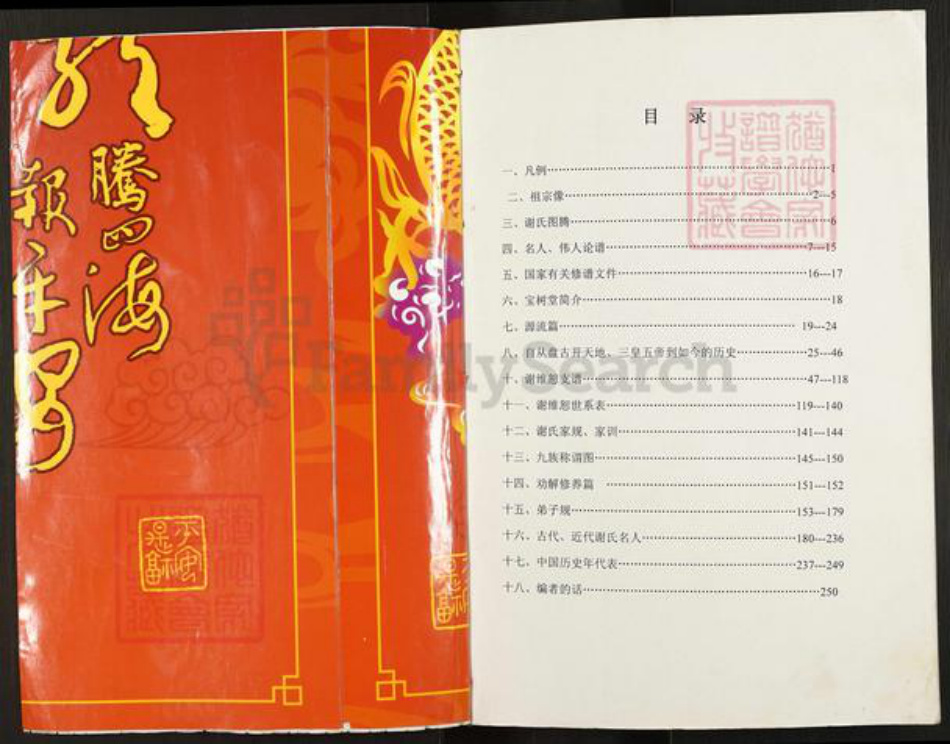 騰四海
報平
平安是福
目 录
一、凡例……1
二、祖宗像……2---5
三、谢氏图腾……6
四、名人、伟人论谱……7---15
五、国家有关修谱文件……16---17
六、宝树堂简介……18
七、源流篇……19---24
八、自从盘古开天地、三皇五帝到如今的历史……25---46
十、谢维恕支谱……47---118
十一、谢维恕世系表……119---140
十二、谢氏家规、家训……141---144
十三、九族称谓图……145---150
十四、劝解修养篇 ……151---152
十五、弟子规……153---179
十六、古代、近代谢氏名人……180---236
十七、中国历史年代表……237---249
十八、编者的话……250
FamilySearch